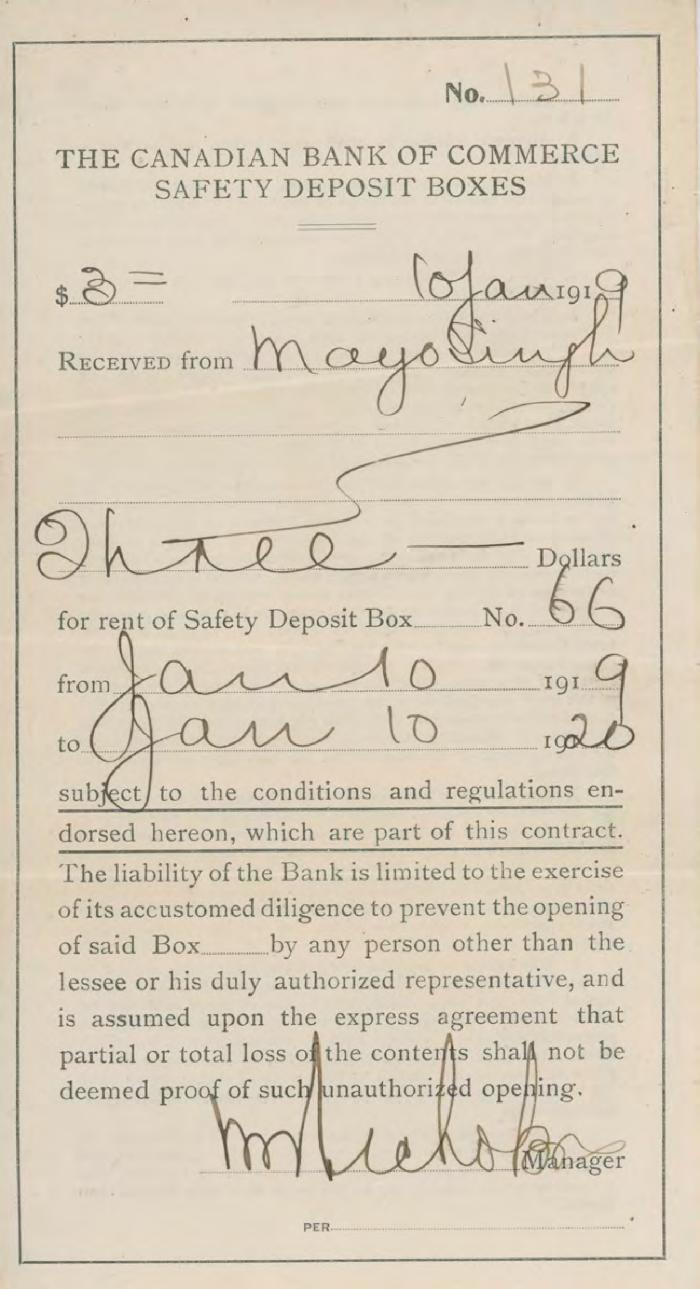 No. 131
THE CANADIAN BANK OF COMMERCE
SAFETY DEPOSIT BOXES
$ 3 = 10 Jan 1919
RECEIVED from Mayo Singh
Three — Dollars
for rent of Safety Deposit Box No. 66
from Jan 10 1919
to Jan 10 1920
subject to the conditions and regulations en-
dorsed hereon, which are part of this contract.
The liability of the Bank is limited to the exercise
of its accustomed diligence to prevent the opening
of said Box by any person other than the
lessee or his duly authorized representative, and
is assumed upon the express agreement that
partial or total loss of the contents shall not be
deemed proof of such unauthorized opening.
Manager
PER